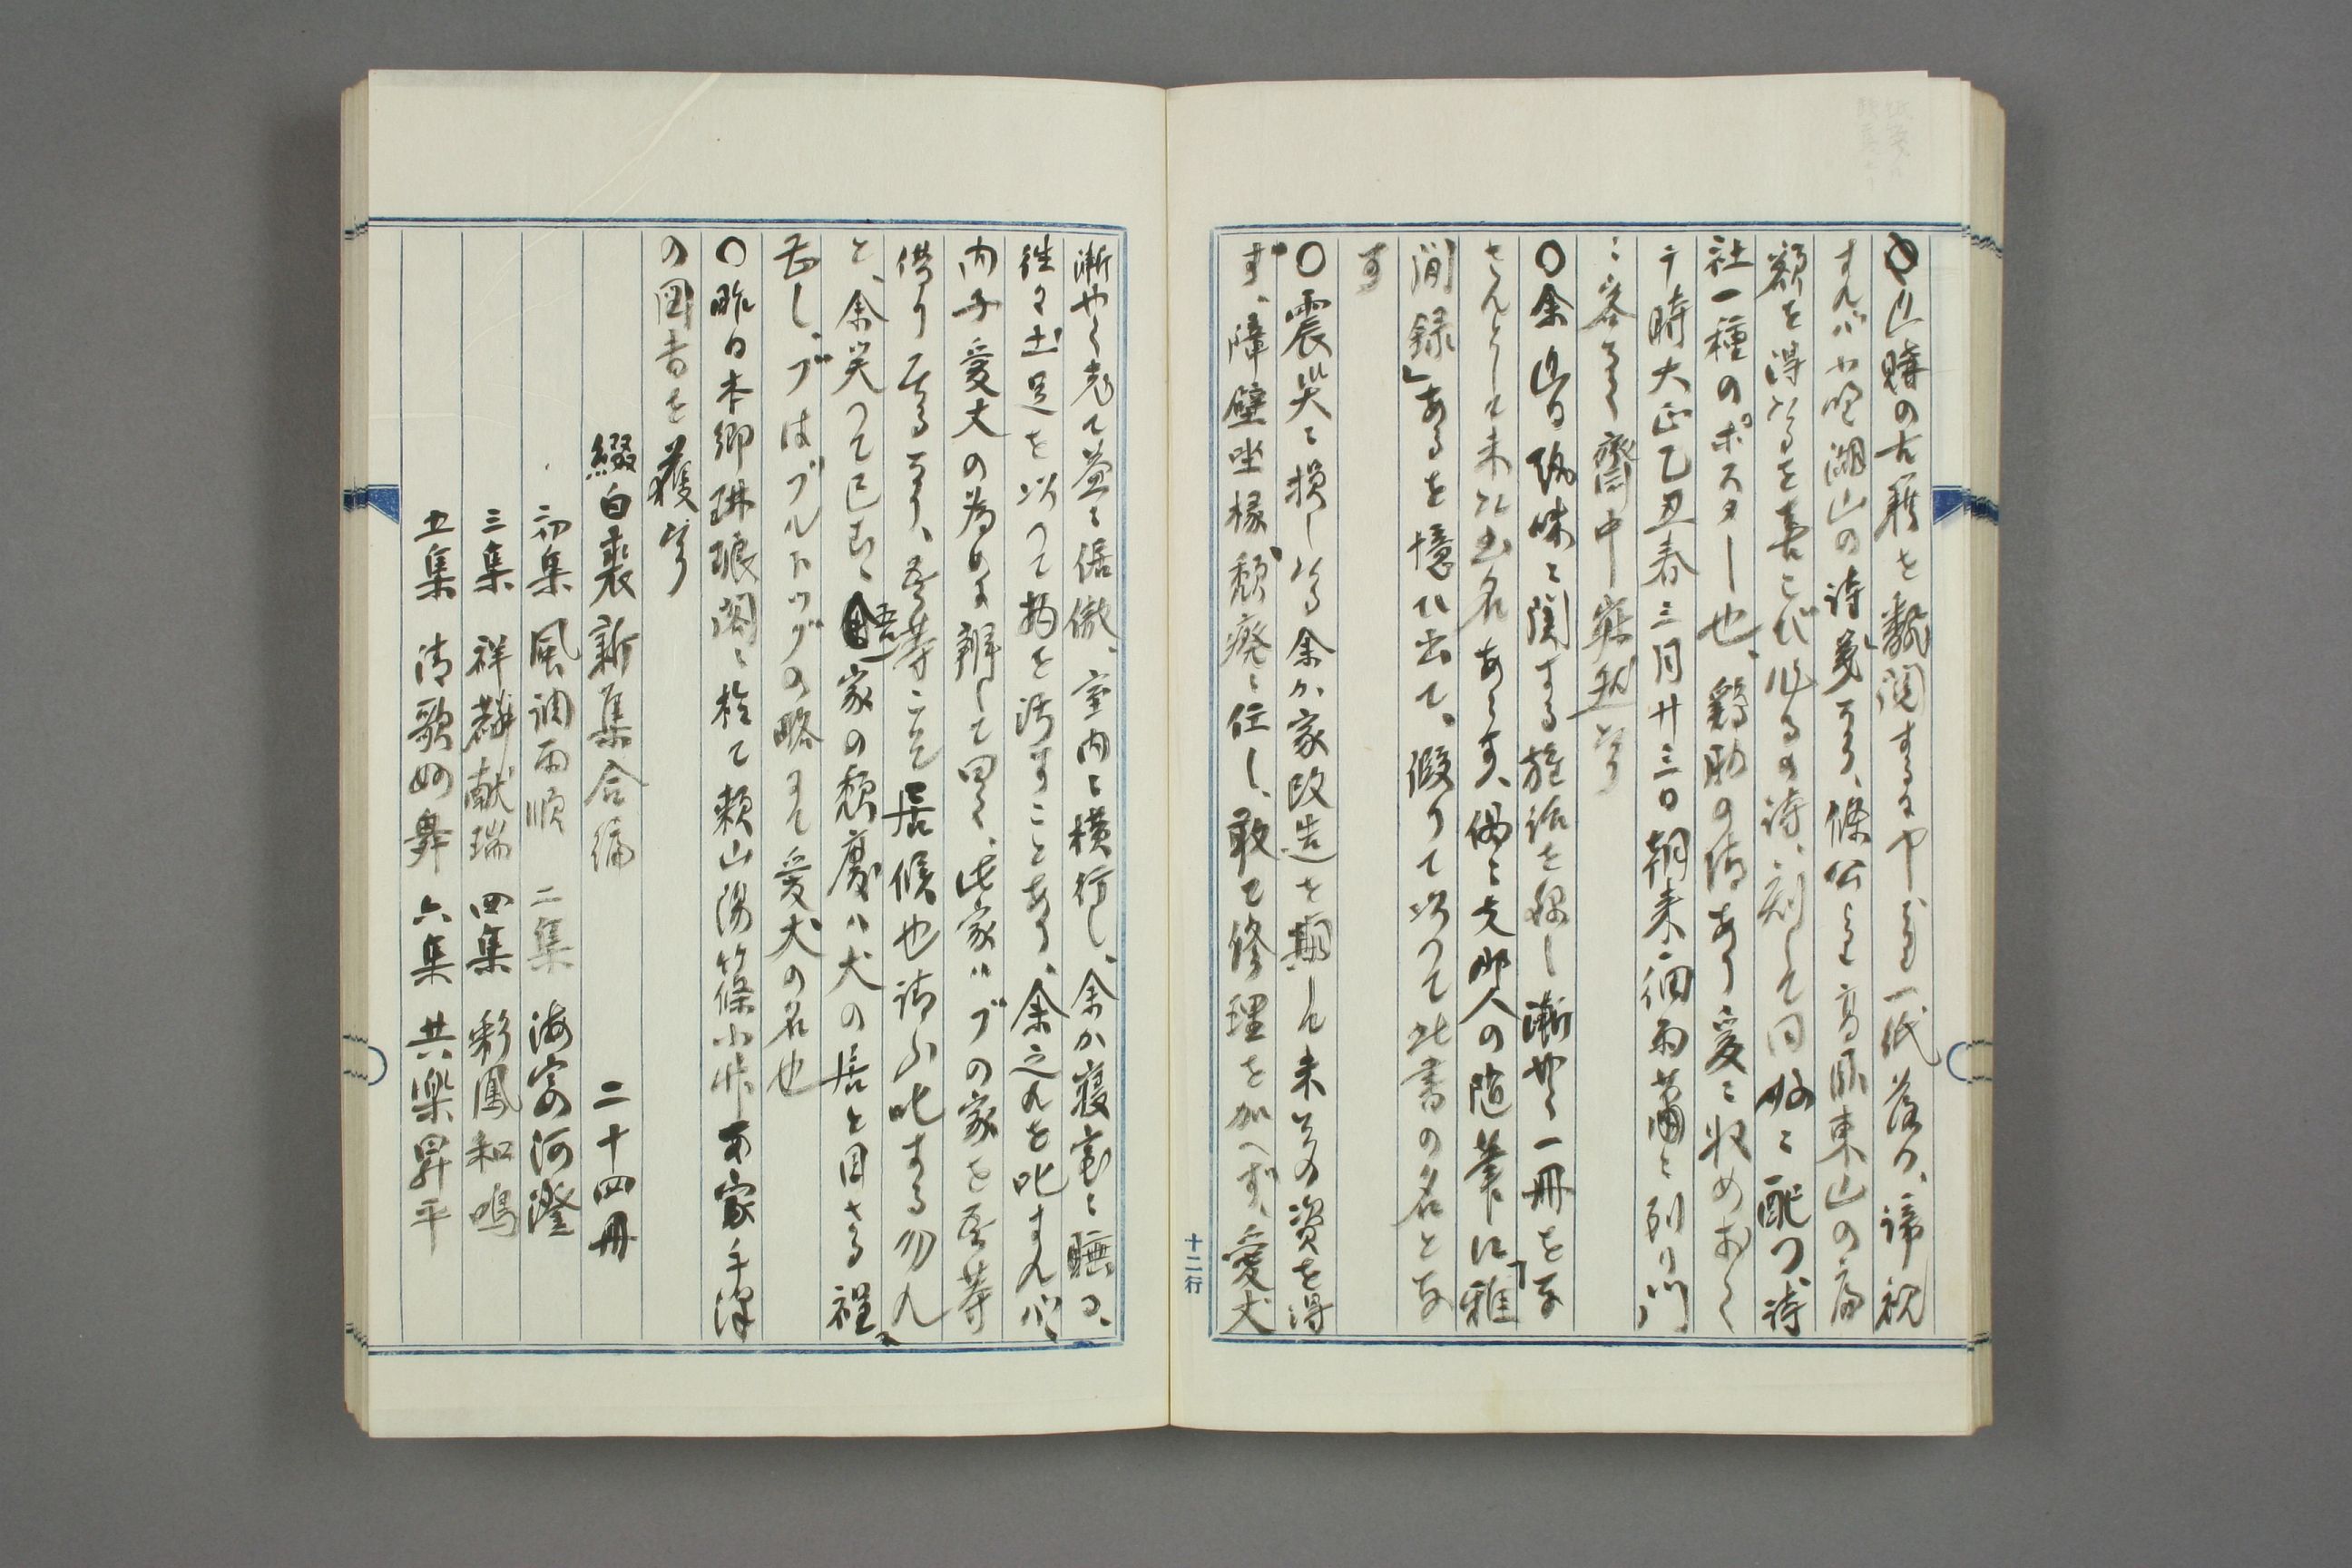 〇近購の古籍を飜閲するや一紙落つ、諦視
すれハ小野湖山の詩箋なり、條公より高臥東山の扁
額を得たるを喜こび作るの詩、刻して同好に配つ、詩
社一種のポスター也、鷄肋の情あり爰に収めおく
于時大正乙丑春三月廿三日朝来雨蕭々到り門
に客なく齋中寂然たり
〇余近日趣味に関する雑話を録し漸やく一冊をな
さんとして未た書名あらす、偶々支那人の随筆に「雅
聞録」あるを憶ひ出て、假りて以つて此書の名とな
す
〇震災に損したる余か家改造を期し未その資を得
す、障壁坐椽頽癈に任し、敢て修理を加へず、愛犬
漸やく老て益々倨傲、室内を横行し、余か寝室に睡る、
往々土足を以つて物を汚すことあり、余之れを叱すれバ、
内子愛犬の為めに辨して曰く、此家ハブの家を吾等
借り居るなり、吾等こそ居候也請ふ叱する勿れ
と、余笑つて已む、吾家の頽廈ハ犬の居と目さる程に
なし、ブはブルドッグの略にて愛犬の名也
〇昨日本郷琳琅閣に於て頼山陽篠小竹両家手澤
の図書を獲たり
綴白裘新集合編　二十四冊
初集　風調雨順　二集　海宴河澄
三集　祥麟献瑞　四集　彩鳳和鳴
五集　清歌妙舞　六集　共楽昇平
十二行